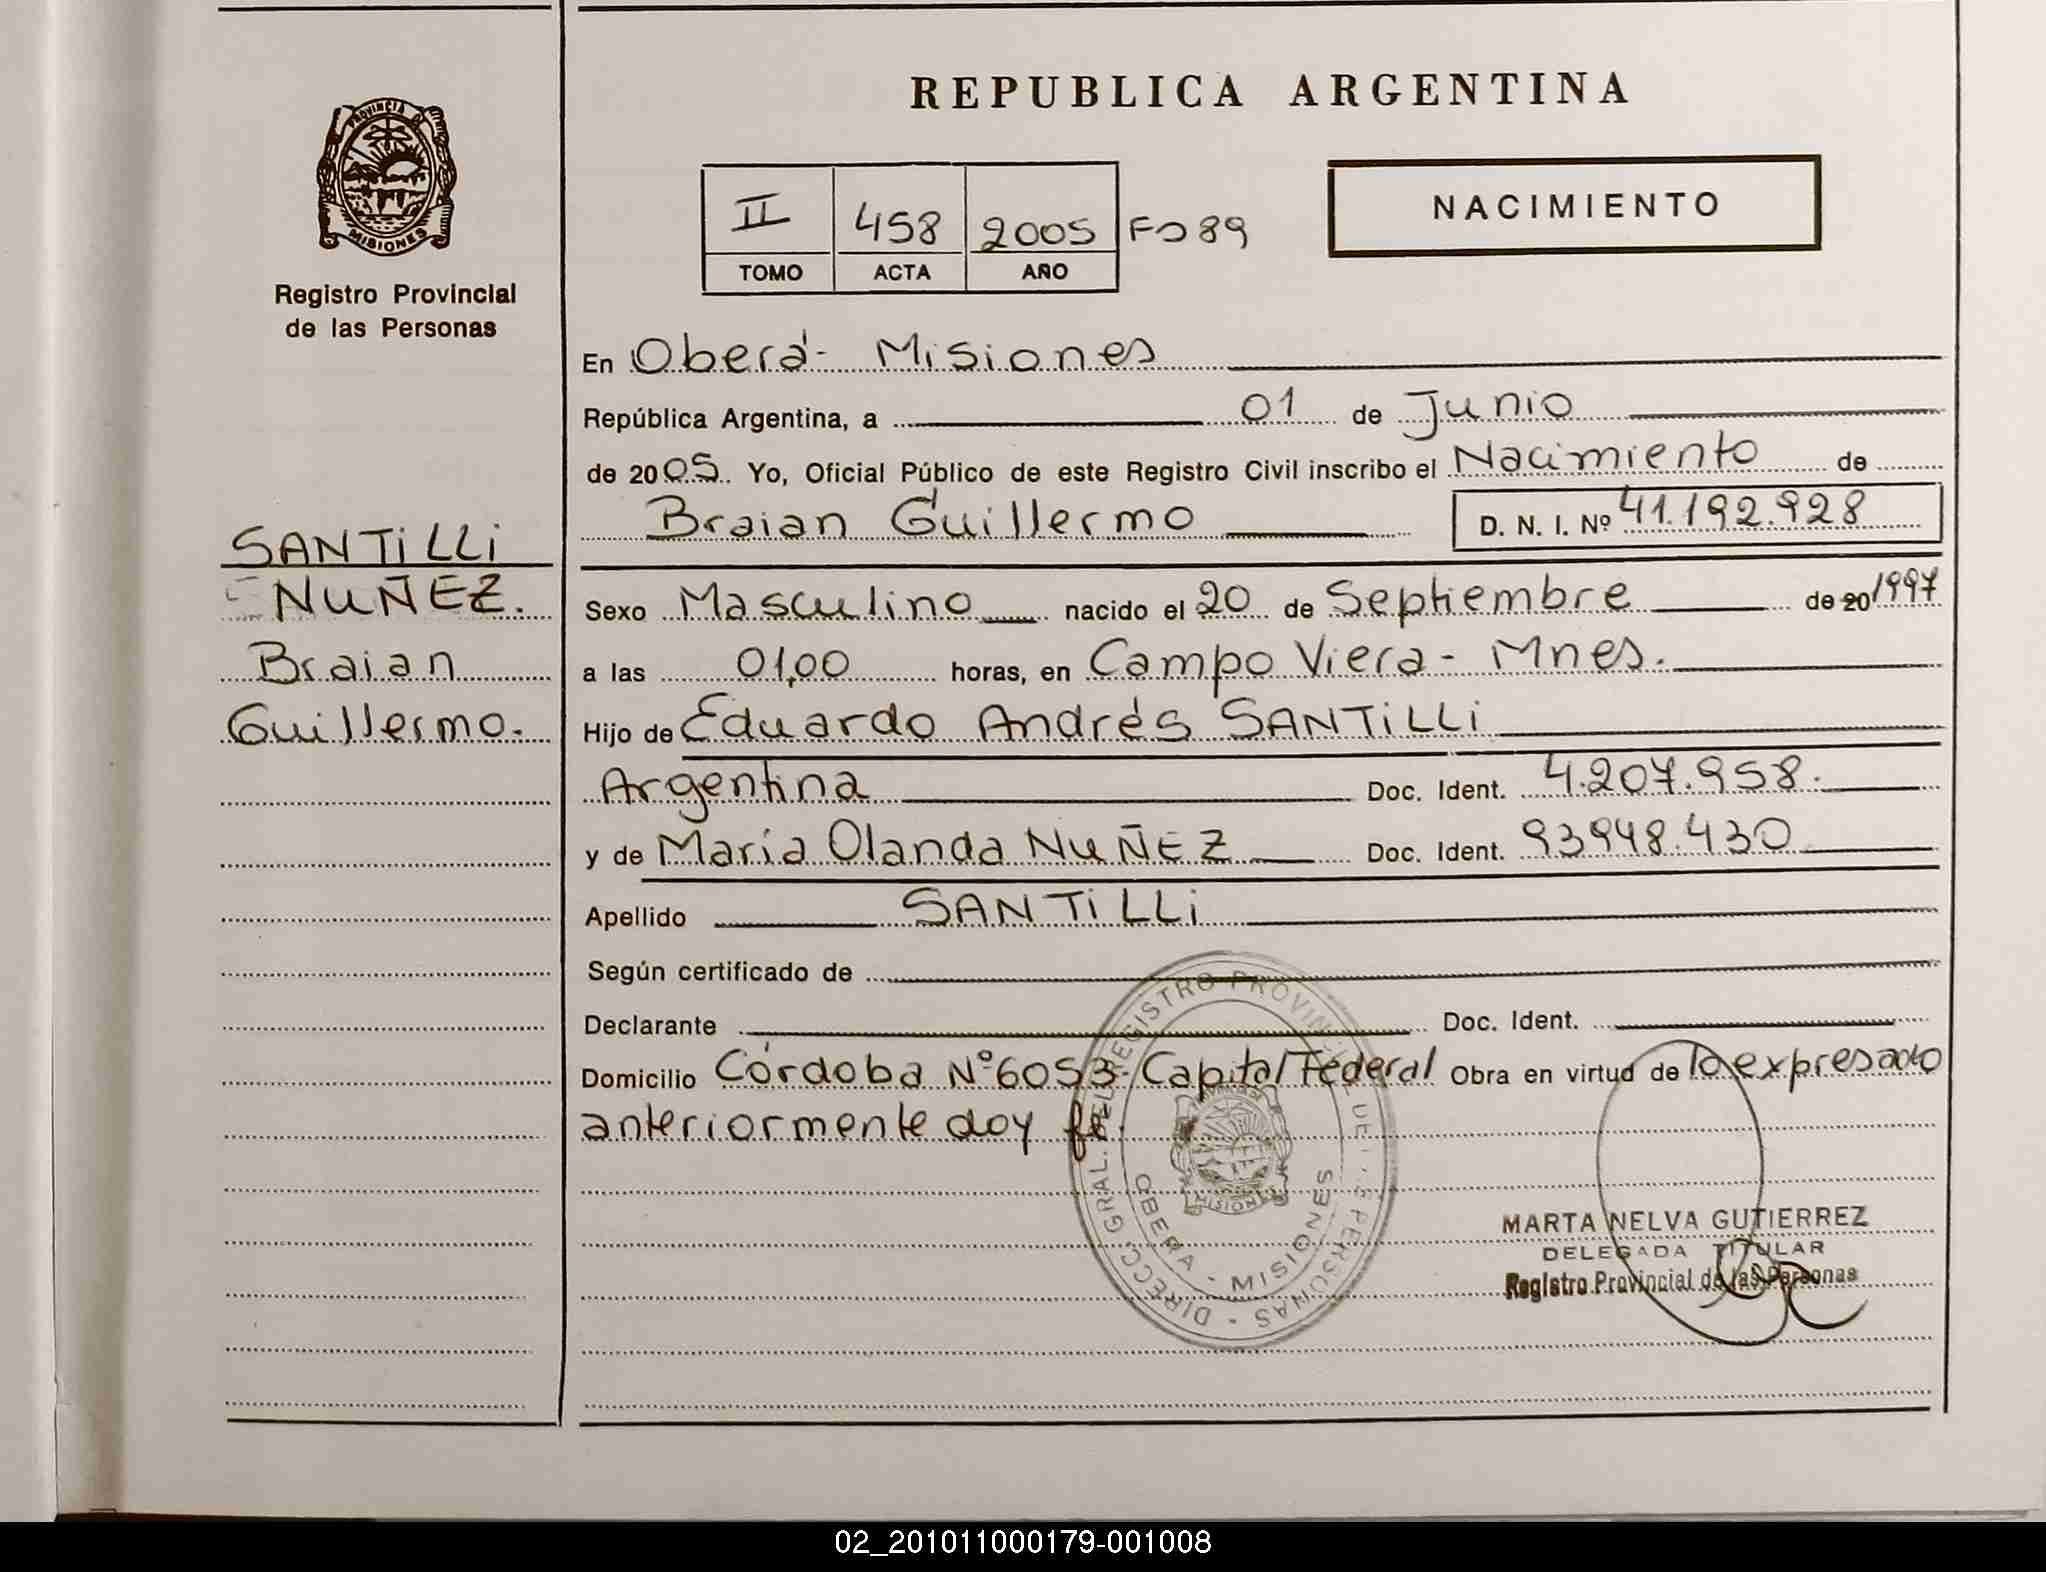 PROVINCIA DE
MISIONES
Registro Provincial
de las Personas
SANTILLI
NUÑEZ.
Braian
Guillermo.
REPUBLICA ARGENTINA
II 458 2005 Fo 89
TOMO ACTA AÑO
NACIMIENTO
En Oberá- Misiones
República Argentina, a 01 de Junio
de 2005. Yo, Oficial Público de este Registro Civil inscribo el Nacimiento de
Braian Guillermo D. N. I. Nº 41.192.928
Sexo Masculino nacido el 20 de Septiembre de 20 1997
a las 01,00 horas, en Campo Viera - Mnes.
Hijo de Eduardo Andrés SANTILLI
Argentina Doc. Ident. 4.207.958.
y de María Olanda NUÑEZ Doc. Ident. 93948.430
Apellido SANTILLI
Según certificado de
Declarante Doc. Ident.
Domicilio Córdoba Nº6053- Capital Federal Obra en virtud de lo expresado
anteriormente doy fé.
DIRECC. GRAL. DEL REGISTRO PROVINCIAL DE LAS PERSONAS -
OBERA - MISIONES
MISIONES
MARTA NELVA GUTIERREZ
DELEGADA TITULAR
Registro Provincial de las Personas
02_201011000179-001008